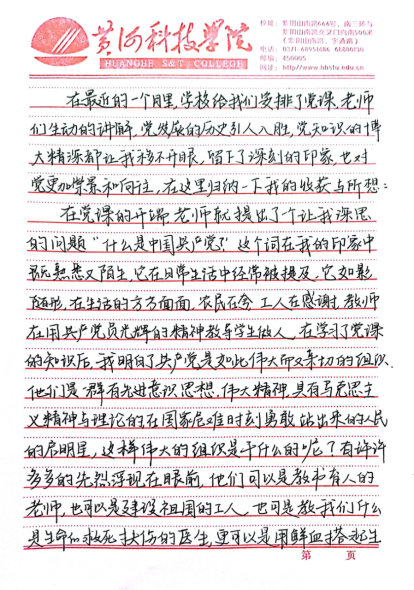 黄河科技学院
HUANGHE S&T COLLEGE
电话：0371-68951686 68880130
邮编：450005
网址：http://www.hhstu.edu.cn
在最近的一个月里，学校给我们安排了党课，老师
们生动的讲解，党发展的历史引人入胜，党知识的博
大精深都让我移不开眼，留下了深刻的印象，也对
党更加崇景和向往，在这里归纳一下我的收获与所想：
在党课的开端，老师就提出了个让我深思
的问题“什么是中国共产党？”这个词在我的印象中
既熟悉又陌生，它在日常生活中经常被提及，它如影
随形，在生活的方方面面，农民在会 工人在感谢，教师
在用共产党员光辉的精神教导学生做人，在学习了党课
的知识后，我明白了共产党是如此伟大而又亲切的组织
他们是一群有先进意识思想，伟大精神，具有马克思主
义精神与理论的在国家危难时刻勇敢站出来的人民
的启明星，这样伟大的组织是干什么的呢？有许许
多多的先烈浮现在眼前，他们可以是教书育人的
老师，也可以是建设祖国的工人，也可是教我们什么
是生命的救死扶伤的医生，更可以是用鲜血搭起生
第 页